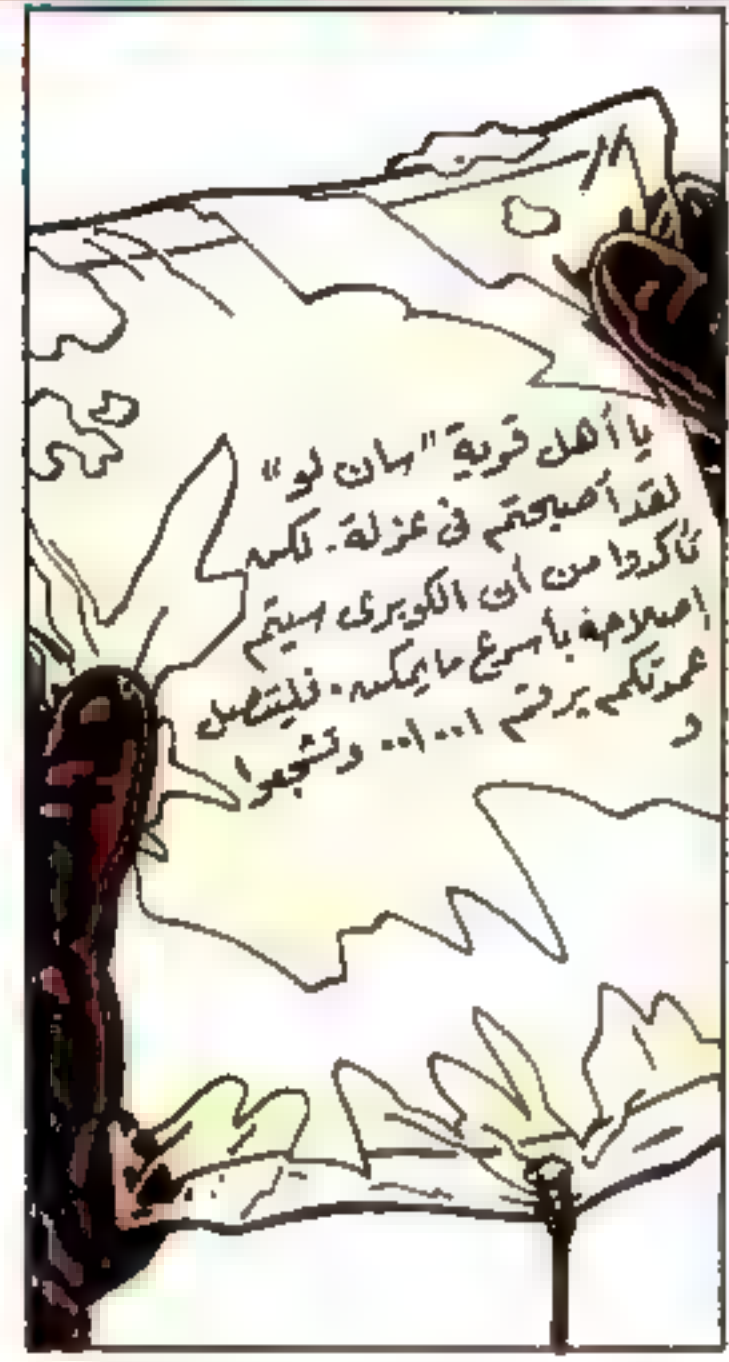 يا أهل قرية "سان لو"
لقد أصبحتم فى عزلة. لكن
تأكدوا من أن الكوبرى سيتم
إصلاحه بأسرع ما يمكن. فليتصل
عمدتكم برقم ١٠٠١٠٠ وتشجعوا
و